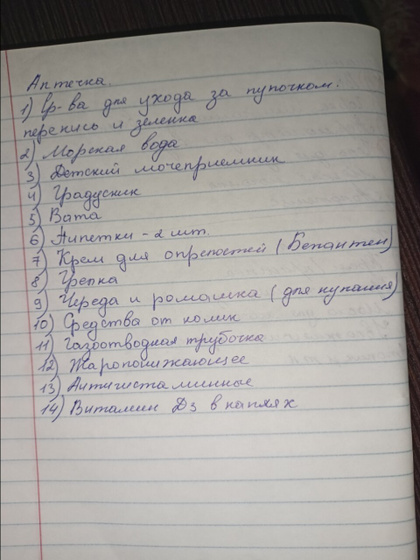 Аптечка.
1) Ср-ва для ухода за пупочком:
перекись и зеленка
2) Морская вода
3) Детский мочеприемник
4) Градусник
5) Вата
6) Пипетки - 2 шт.
7) Крем для опрелостей (Бепантен)
8) Грелка
9) Череда и ромашка (для купания)
10) Средства от колик
11) Газоотводная трубочка
12) Жаропонижающее
13) Антигистаминные
14) Витамин Д3 в каплях